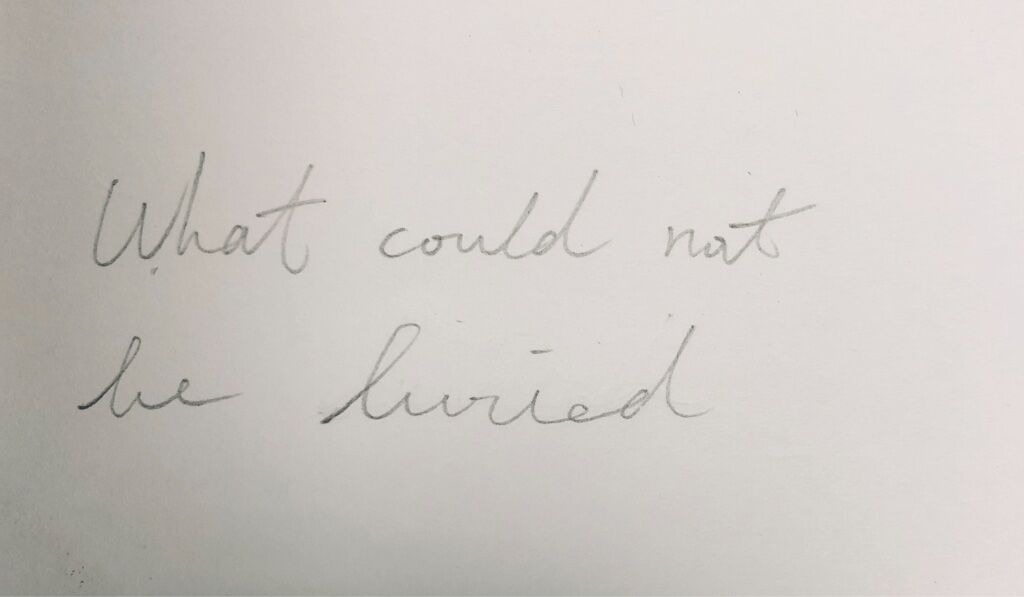 What could not
be buried